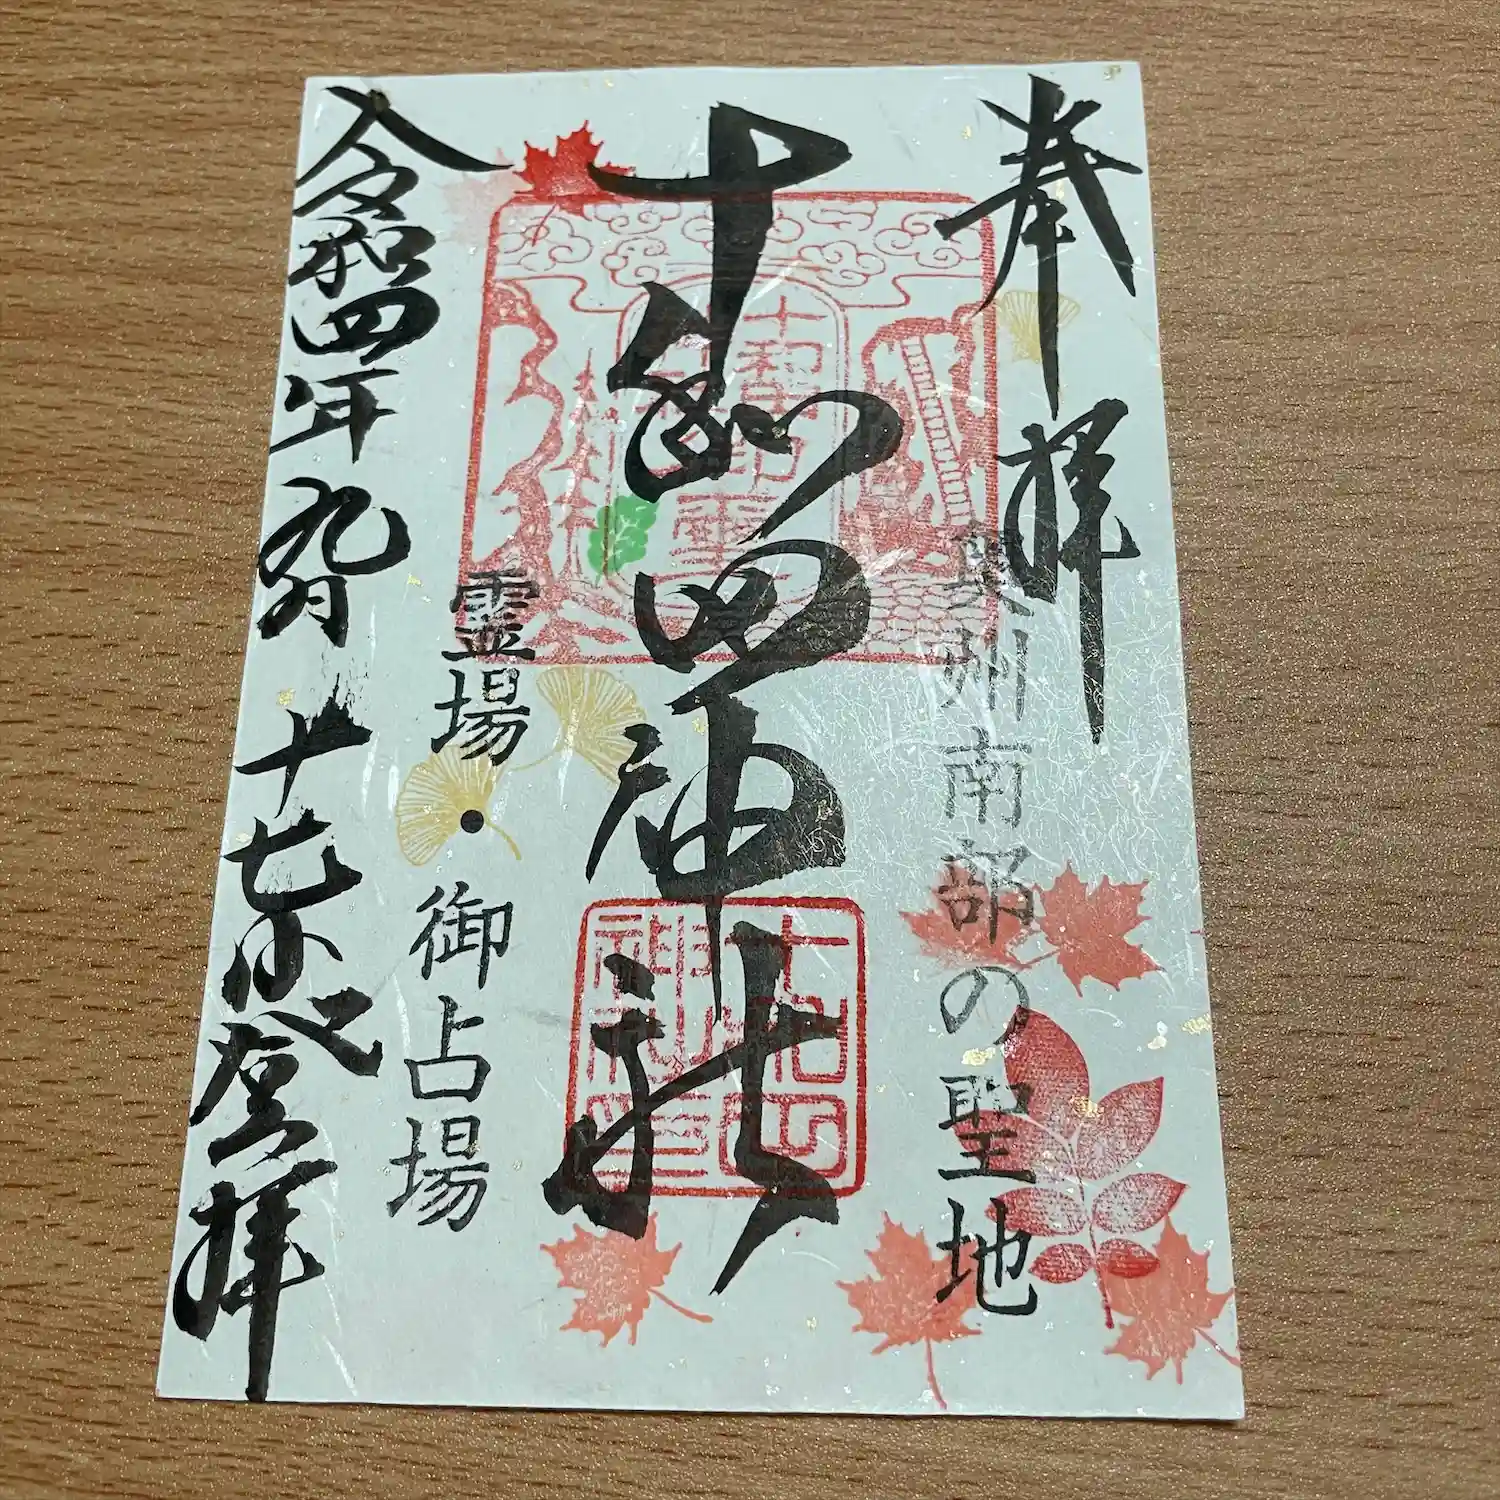 奉拝
奥州南部の聖地
十和田神社
十和田
神社印
霊場・御占場
令和四年九月十七日登拝